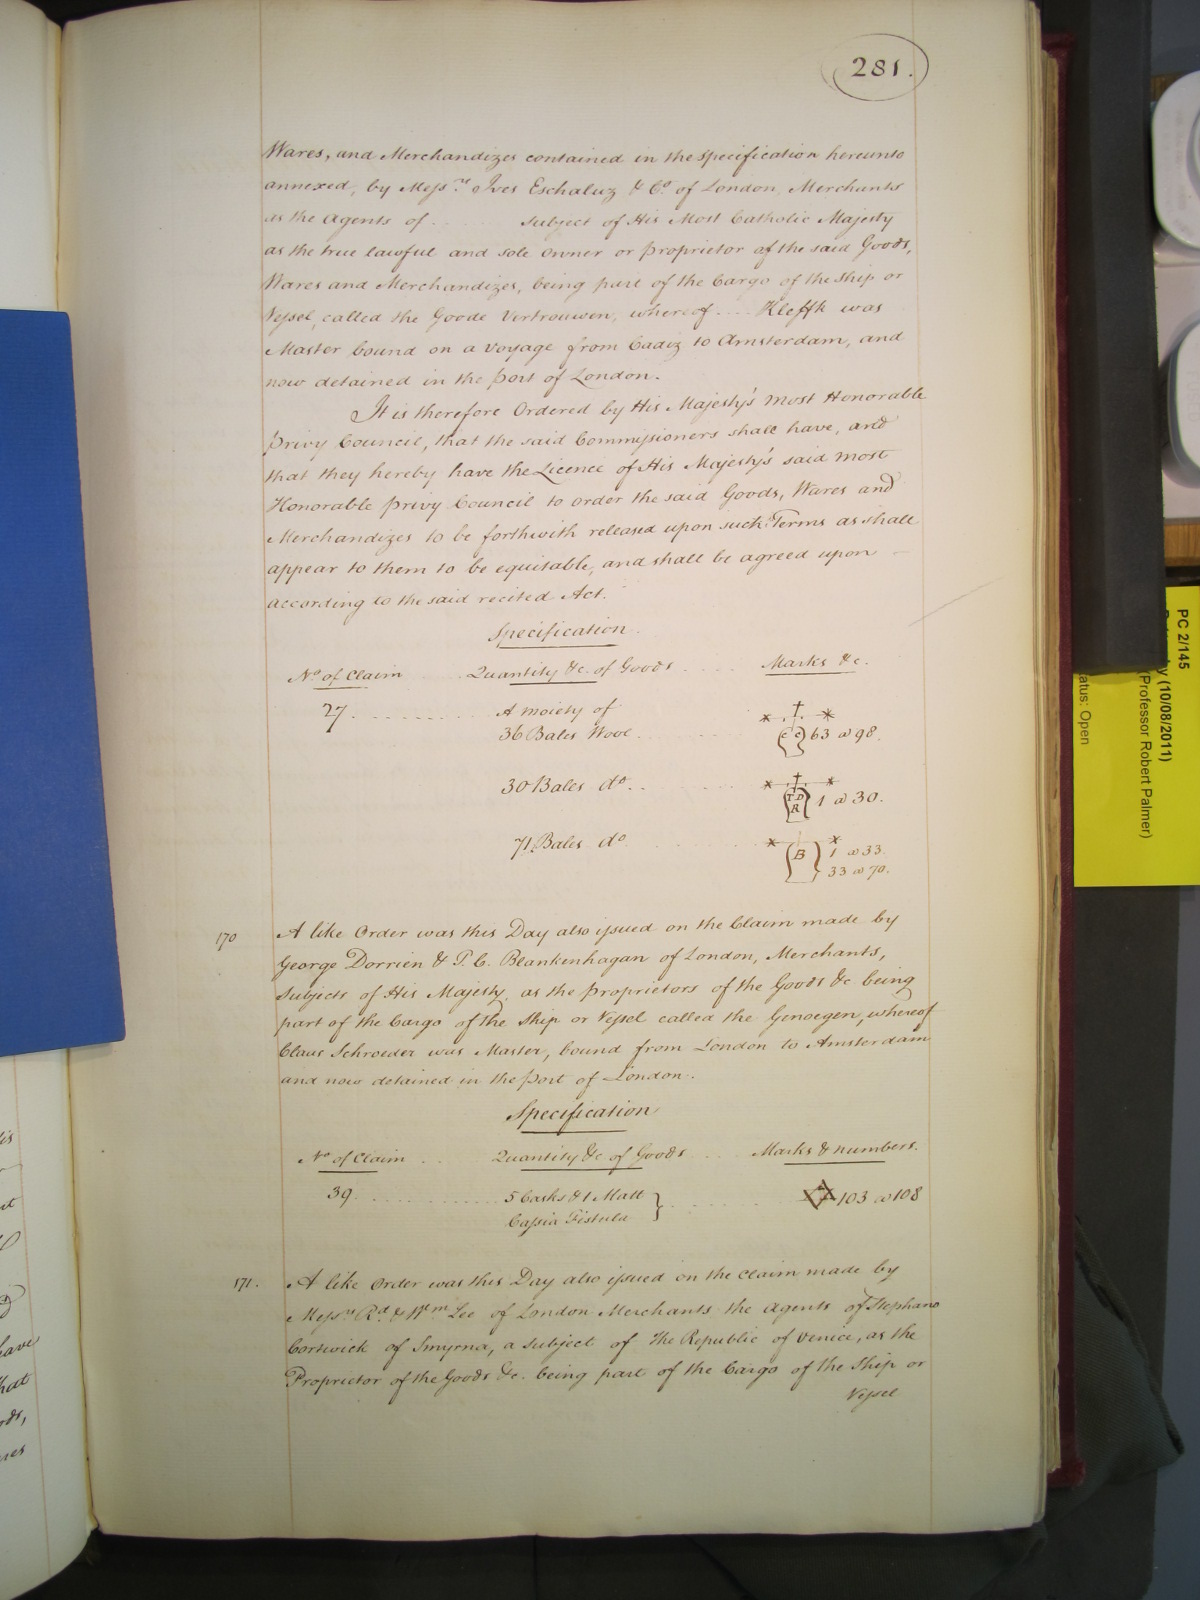 281.
Wares, and Merchandizes contained in the Specification hereunto
annexed, by Messrs Ives Eschaluz & Co. of London, Merchants
as the Agents of ........ Subject of His Most Catholic Majesty
as the true lawful and sole Owner or Proprietor of the said Goods,
Wares and Merchandizes, being part of the Cargo of the Ship or
Vessel, called the Goode Vertrouwen, whereof .... Kleffk was
Master bound on a Voyage from Cadiz to Amsterdam, and
now detained in the Port of London.
It is therefore Ordered by His Majesty's Most Honorable
Privy Council, that the said Commissioners shall have, and
that they hereby have the Licence of His Majesty's said most
Honorable Privy Council to order the said Goods, Wares and
Merchandizes to be forthwith released upon such Terms as shall
appear to them to be equitable, and shall be agreed upon
according to the said recited Act.
Specification
No. of Claim .... Quantity &c. of Goods .... Marks &c.
27 ........ A moiety of
36 Bales Wool ...... C C 63 a 98.
30 Bales do. ...... T D R 1 a 30.
71 Bales do ...... B 1 a 33.
33 a 70.
170 A like Order was this Day also issued on the Claim made by
George Dorrien & T. C. Blankenhagan of London, Merchants,
Subjects of His Majesty, as the Proprietors of the Goods &c being
part of the Cargo of the Ship or Vessel called the Genoegen, whereof
Claus Schroeder was Master, bound from London to Amsterdam
and now detained in the Port of London.
Specification
No. of Claim ... Quantity &c of Goods .... Marks & numbers.
39. ........ 5 Casks & 1 Matt } ...... 103 a 108
Cassia Fistula
171. A like Order was this Day also issued on the Claim made by
Messrs Rd. & Wm Lee of London Merchants the Agents of Stephano
Cortwick of Smyrna, a Subject of the Republic of Venice, as the
Proprietor of the Goods &c. being part of the Cargo of the Ship or
Vessel
PC 2/145
(10/08/2011)
(Professor Robert Palmer)
atus: Open